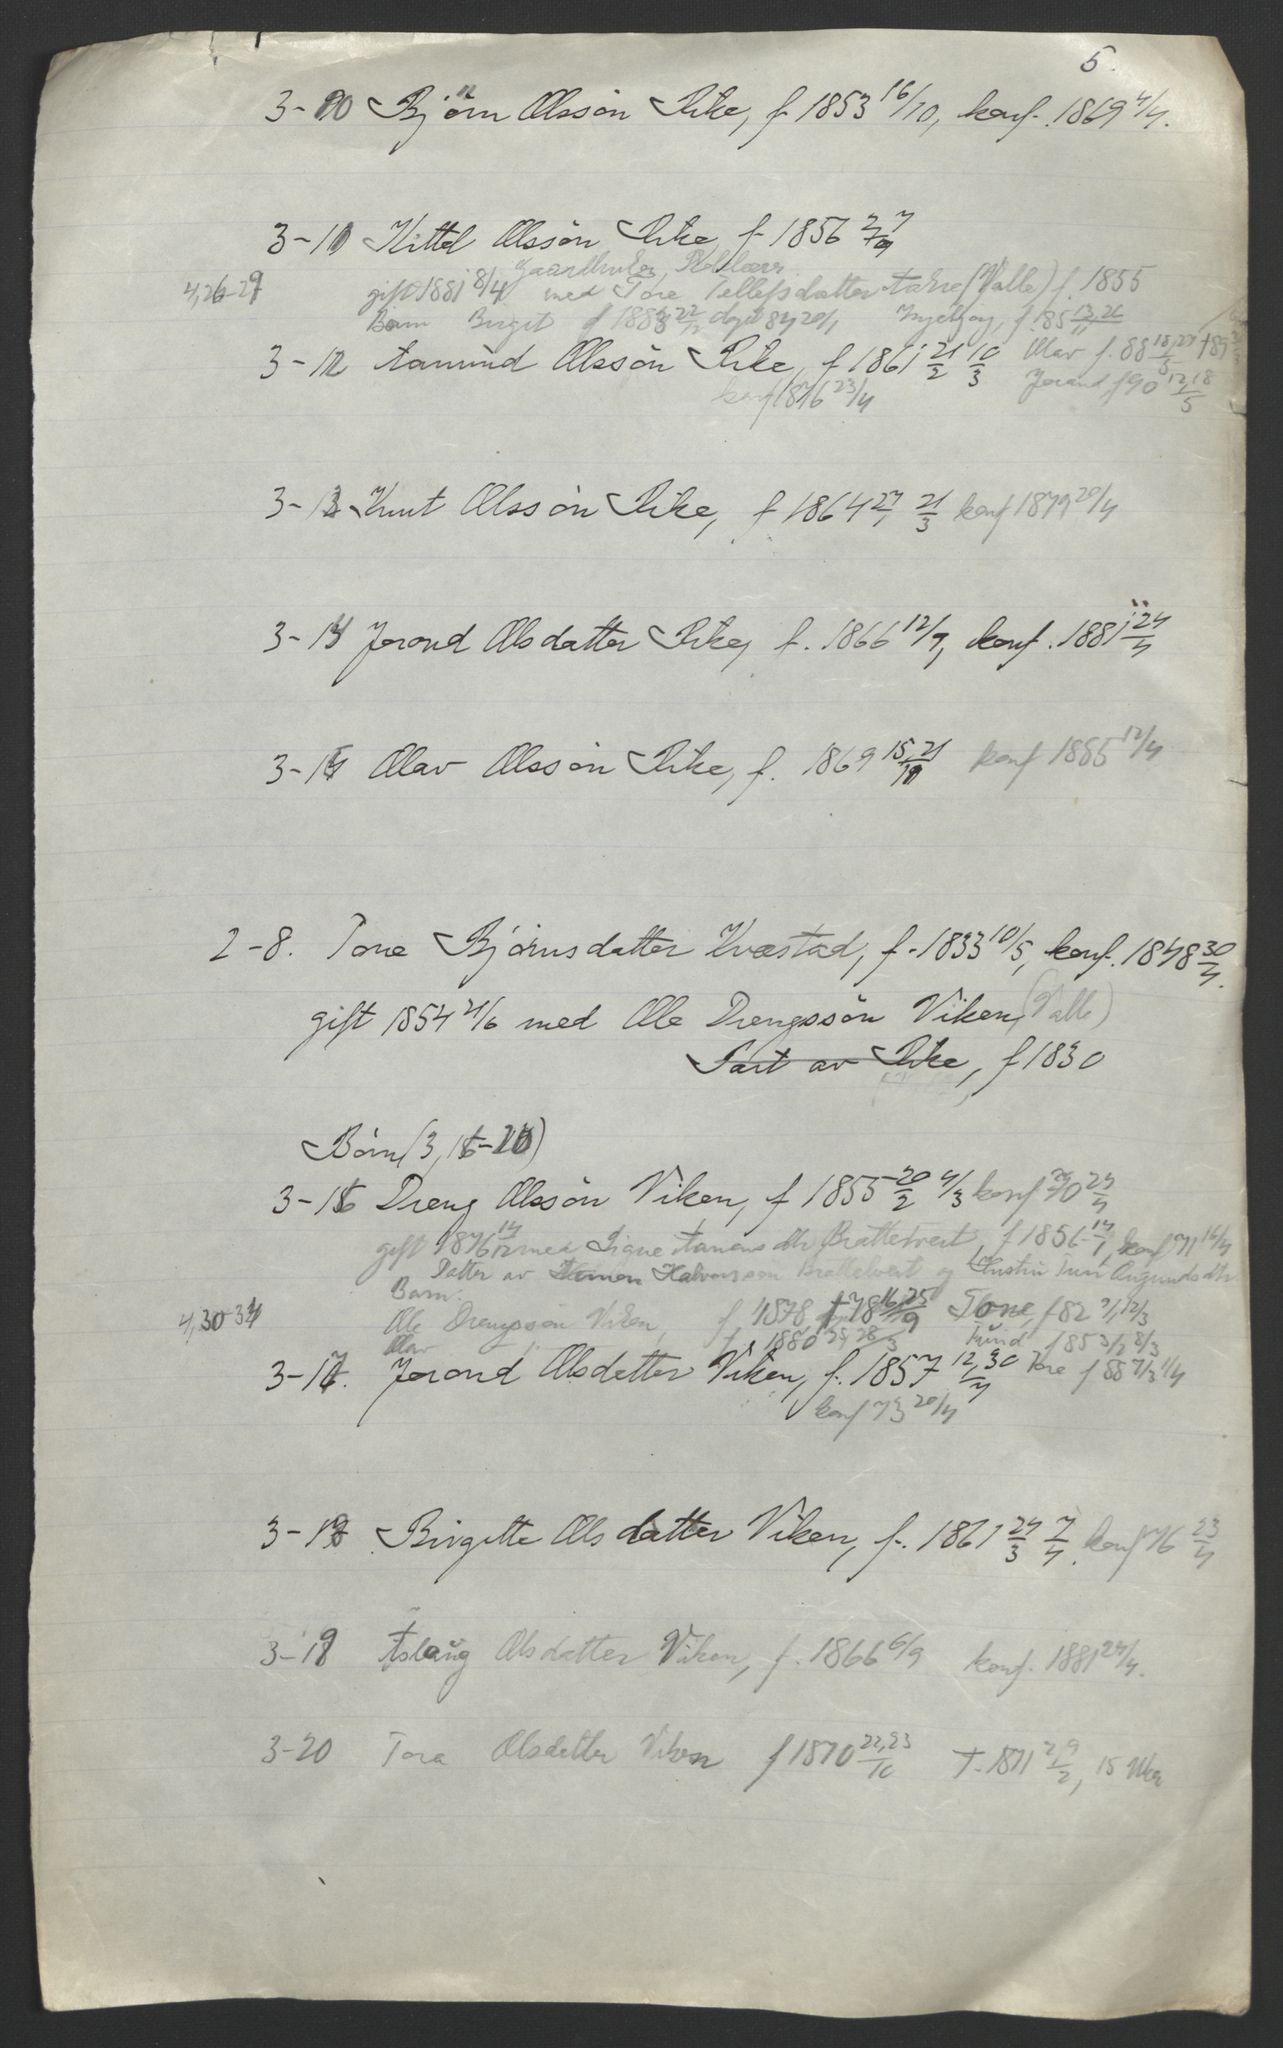 5.
3-10 Björn Olssön Rike, f 1853 16/10, konf. 1869 4/4.
3-11 Kittel Olssön Rike f. 1856 27/9
Gaardbruker,
4,26-29 gift 1881 8/4 med Tore Tellefsdatter (Valle) f. 1855
Barn Birgit f 188 22/12 84 20/1 Ingebjörg, f. 185 13,26
3-12 Aamund Olssön Rike, f 1861 21/2 10/3 Olav f. 88 18,27/5 + 89
konf 1876 23/4 Jorand f 90 12,18/5
3-13 Knut Olssön Rike, f 1864 27/1 21/3 konf 1879 20/4
3-14 Jorond Olsdatter Rike, f. 1866 12/9, konf. 1881 24/4
3-15 Olav Olssön Rike, f. 1869 15,21/11 konf 1885 12/4
2-8. Tone Björnsdatter Kvæstad, f. 1833 10/5, konf. 1848 30/4.
gift 1854 21/6 med Ole Drengssön Viken, (Valle)
Part av Rike, f 1830
Börn (3, 16-20)
3-16 Dreng Olssön Viken, f 1855 20/2 4/3 konf 70 24/4
gift 1876 med Signe dtr Brattetveit, f 1856 17/1, konf 71 16/4
Datter av Halvorsson Brattetveit og Hustru Augundsdtr
Barn:
4,30-34 Ole Drengsson Viken, f 1878 + 78 16,25/9 Tone, f 82 2/1, 12/3
Olav f. 1880 25,28/3 f 85 3/2 8/3
3-17. Jorond Olsdatter Viken, f. 1857 12,30/4 Tore f 88 7/3 1/4
konf 73 20/4
3-18 Birgitte Olsdatter Viken, f. 1861 24/3 7/4. konf 76 23/4
3-19 Aslaug Olsdatter Viken, f. 1866 6/9 konf. 1881 24/4.
3-20 Tora Olsdatter Viken f 1870 22,23/10 +. 1871 2,9/2, 15 Uker